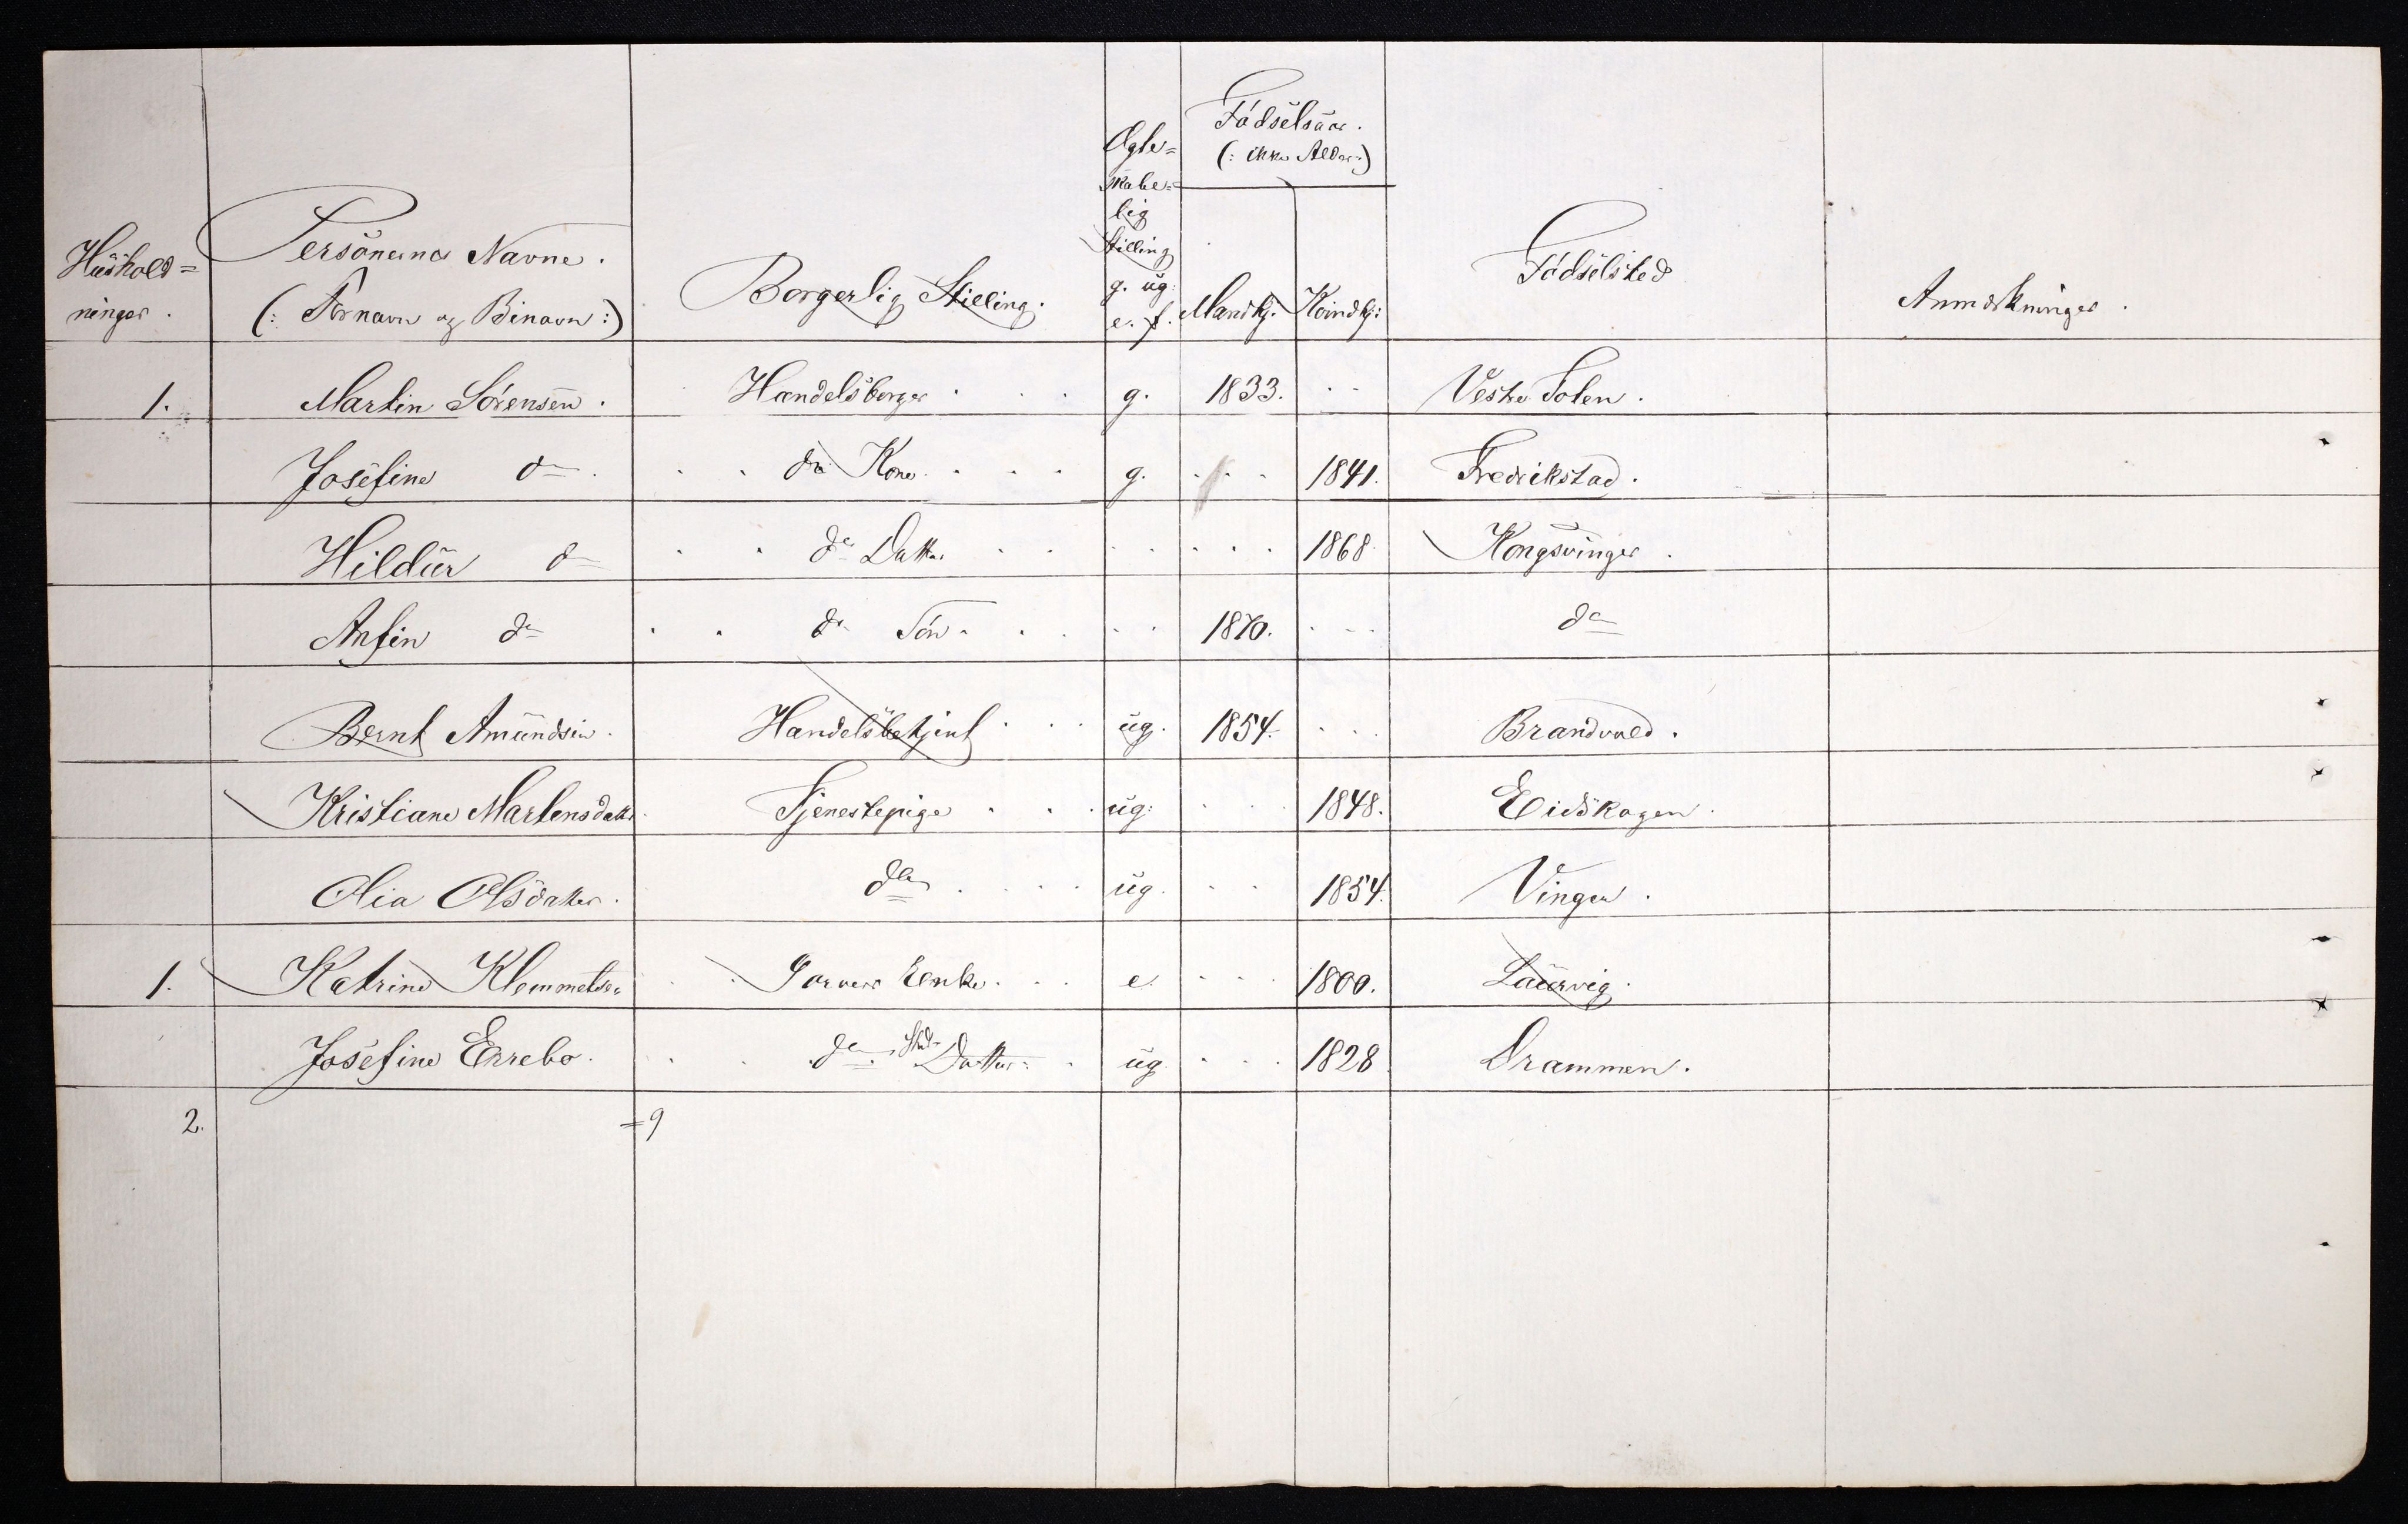 Husholdninger.
Personernes Navne.
(: Fornavn og Binavn :)
Borgerlig Stilling.
Ægte=
skabe=
lig
Stilling
g. ug.
e. f.
Fødselsaar.
(: ikke Alder :)
Mandkj. Kvindkj:
Fødselsted
Anmærkninger.
1. Martin Sörensen. Handelsborger g. 1833. Vestre Toten.
Josefine do do Kone g. 1841. Fredrikstad.
Hildur do do Datter 1868 Kongsvinger.
Anfin do do Sön 1870. do
Bernt Amundsen. Handelsbetjent ug. 1854. Brandvold.
Kristiane Martensdatter Tjenestepige ug. 1848. Eidskogen.
Olia Olsdatter. do ug. 1854. Vinger.
1. Katrine Klemmetsen Garvers Enke e. 1800. Laurvig.
Josefine Errebo. do Sted- Datter. ug. 1828 Drammen.
2. =9